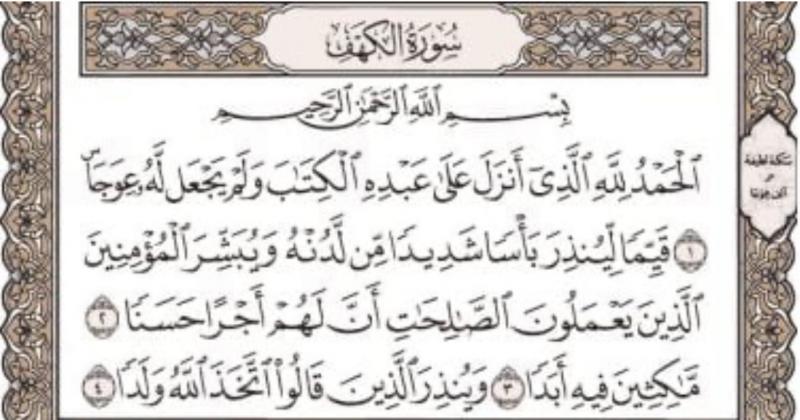 سُورَةُ الكَهْفِ
بِسْمِ اللَّهِ الرَّحْمَٰنِ الرَّحِيمِ
الْحَمْدُ لِلَّهِ الَّذِي أَنزَلَ عَلَىٰ عَبْدِهِ الْكِتَابَ وَلَمْ يَجْعَل لَّهُ عِوَجًا ۜ
١ قَيِّمًا لِّيُنذِرَ بَأْسًا شَدِيدًا مِّن لَّدُنْهُ وَيُبَشِّرَ الْمُؤْمِنِينَ
الَّذِينَ يَعْمَلُونَ الصَّالِحَاتِ أَنَّ لَهُمْ أَجْرًا حَسَنًا ٢
مَّاكِثِينَ فِيهِ أَبَدًا ٣ وَيُنذِرَ الَّذِينَ قَالُوا اتَّخَذَ اللَّهُ وَلَدًا ٤
سكتة لطيفة